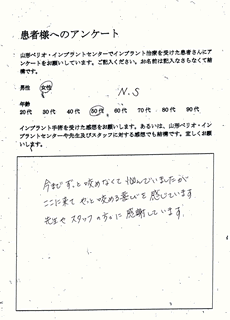 患者様へのアンケート
山形ペリオ・インプラントセンターでインプラント治療を受けた患者さんにア
ンケートをお願いしています。ご記入ください。お名前は記入なさらなくて結
構です。
男性 女性 N.S
年齢
20代 30代 40代 50代 60代 70代 80代 90代
インプラント手術を受けた感想をお願いします。あるいは、山形ペリオ・イン
プラントセンターや先生及びスタッフに対する感想でも結構です。宜しくお願
いします。
今まで ずっと咬めなくて悩んでいましたが
ここに来て やっと咬める喜びを感じています
先生や スタッフの方々に感謝しています。